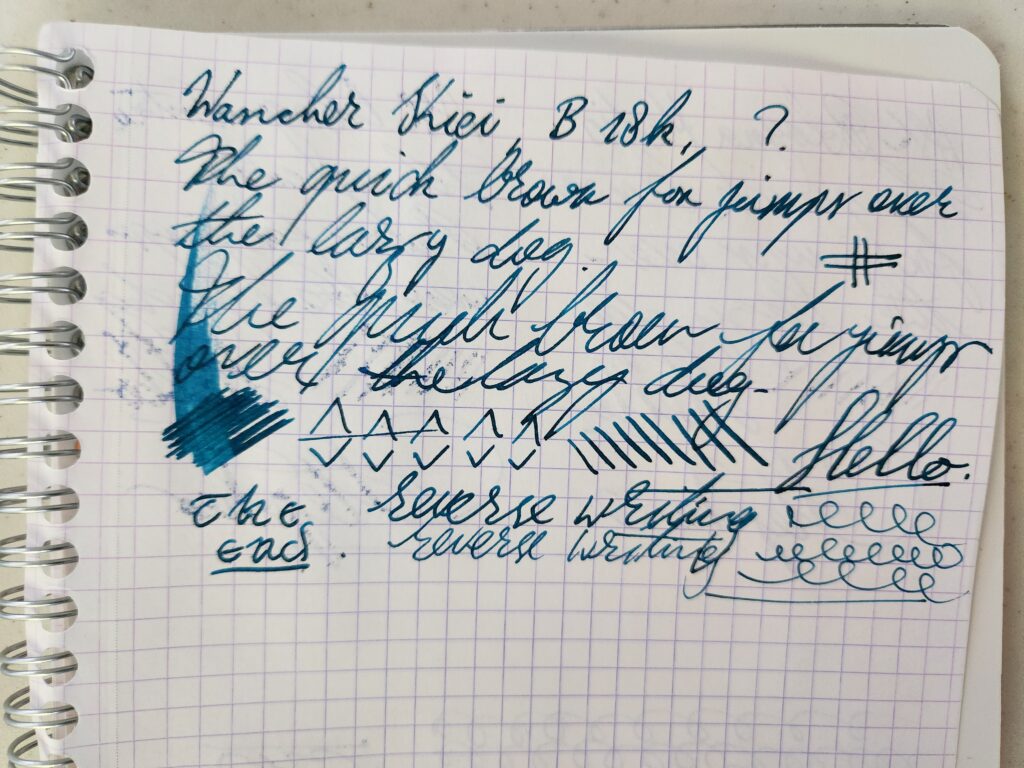 Wancher Kiei, B 18k, ?
The quick brown fox jumps over
the lazy dog.
The quick brown fox jumps
over the lazy dog.
Hello.
The reverse writing
end. reverse writing